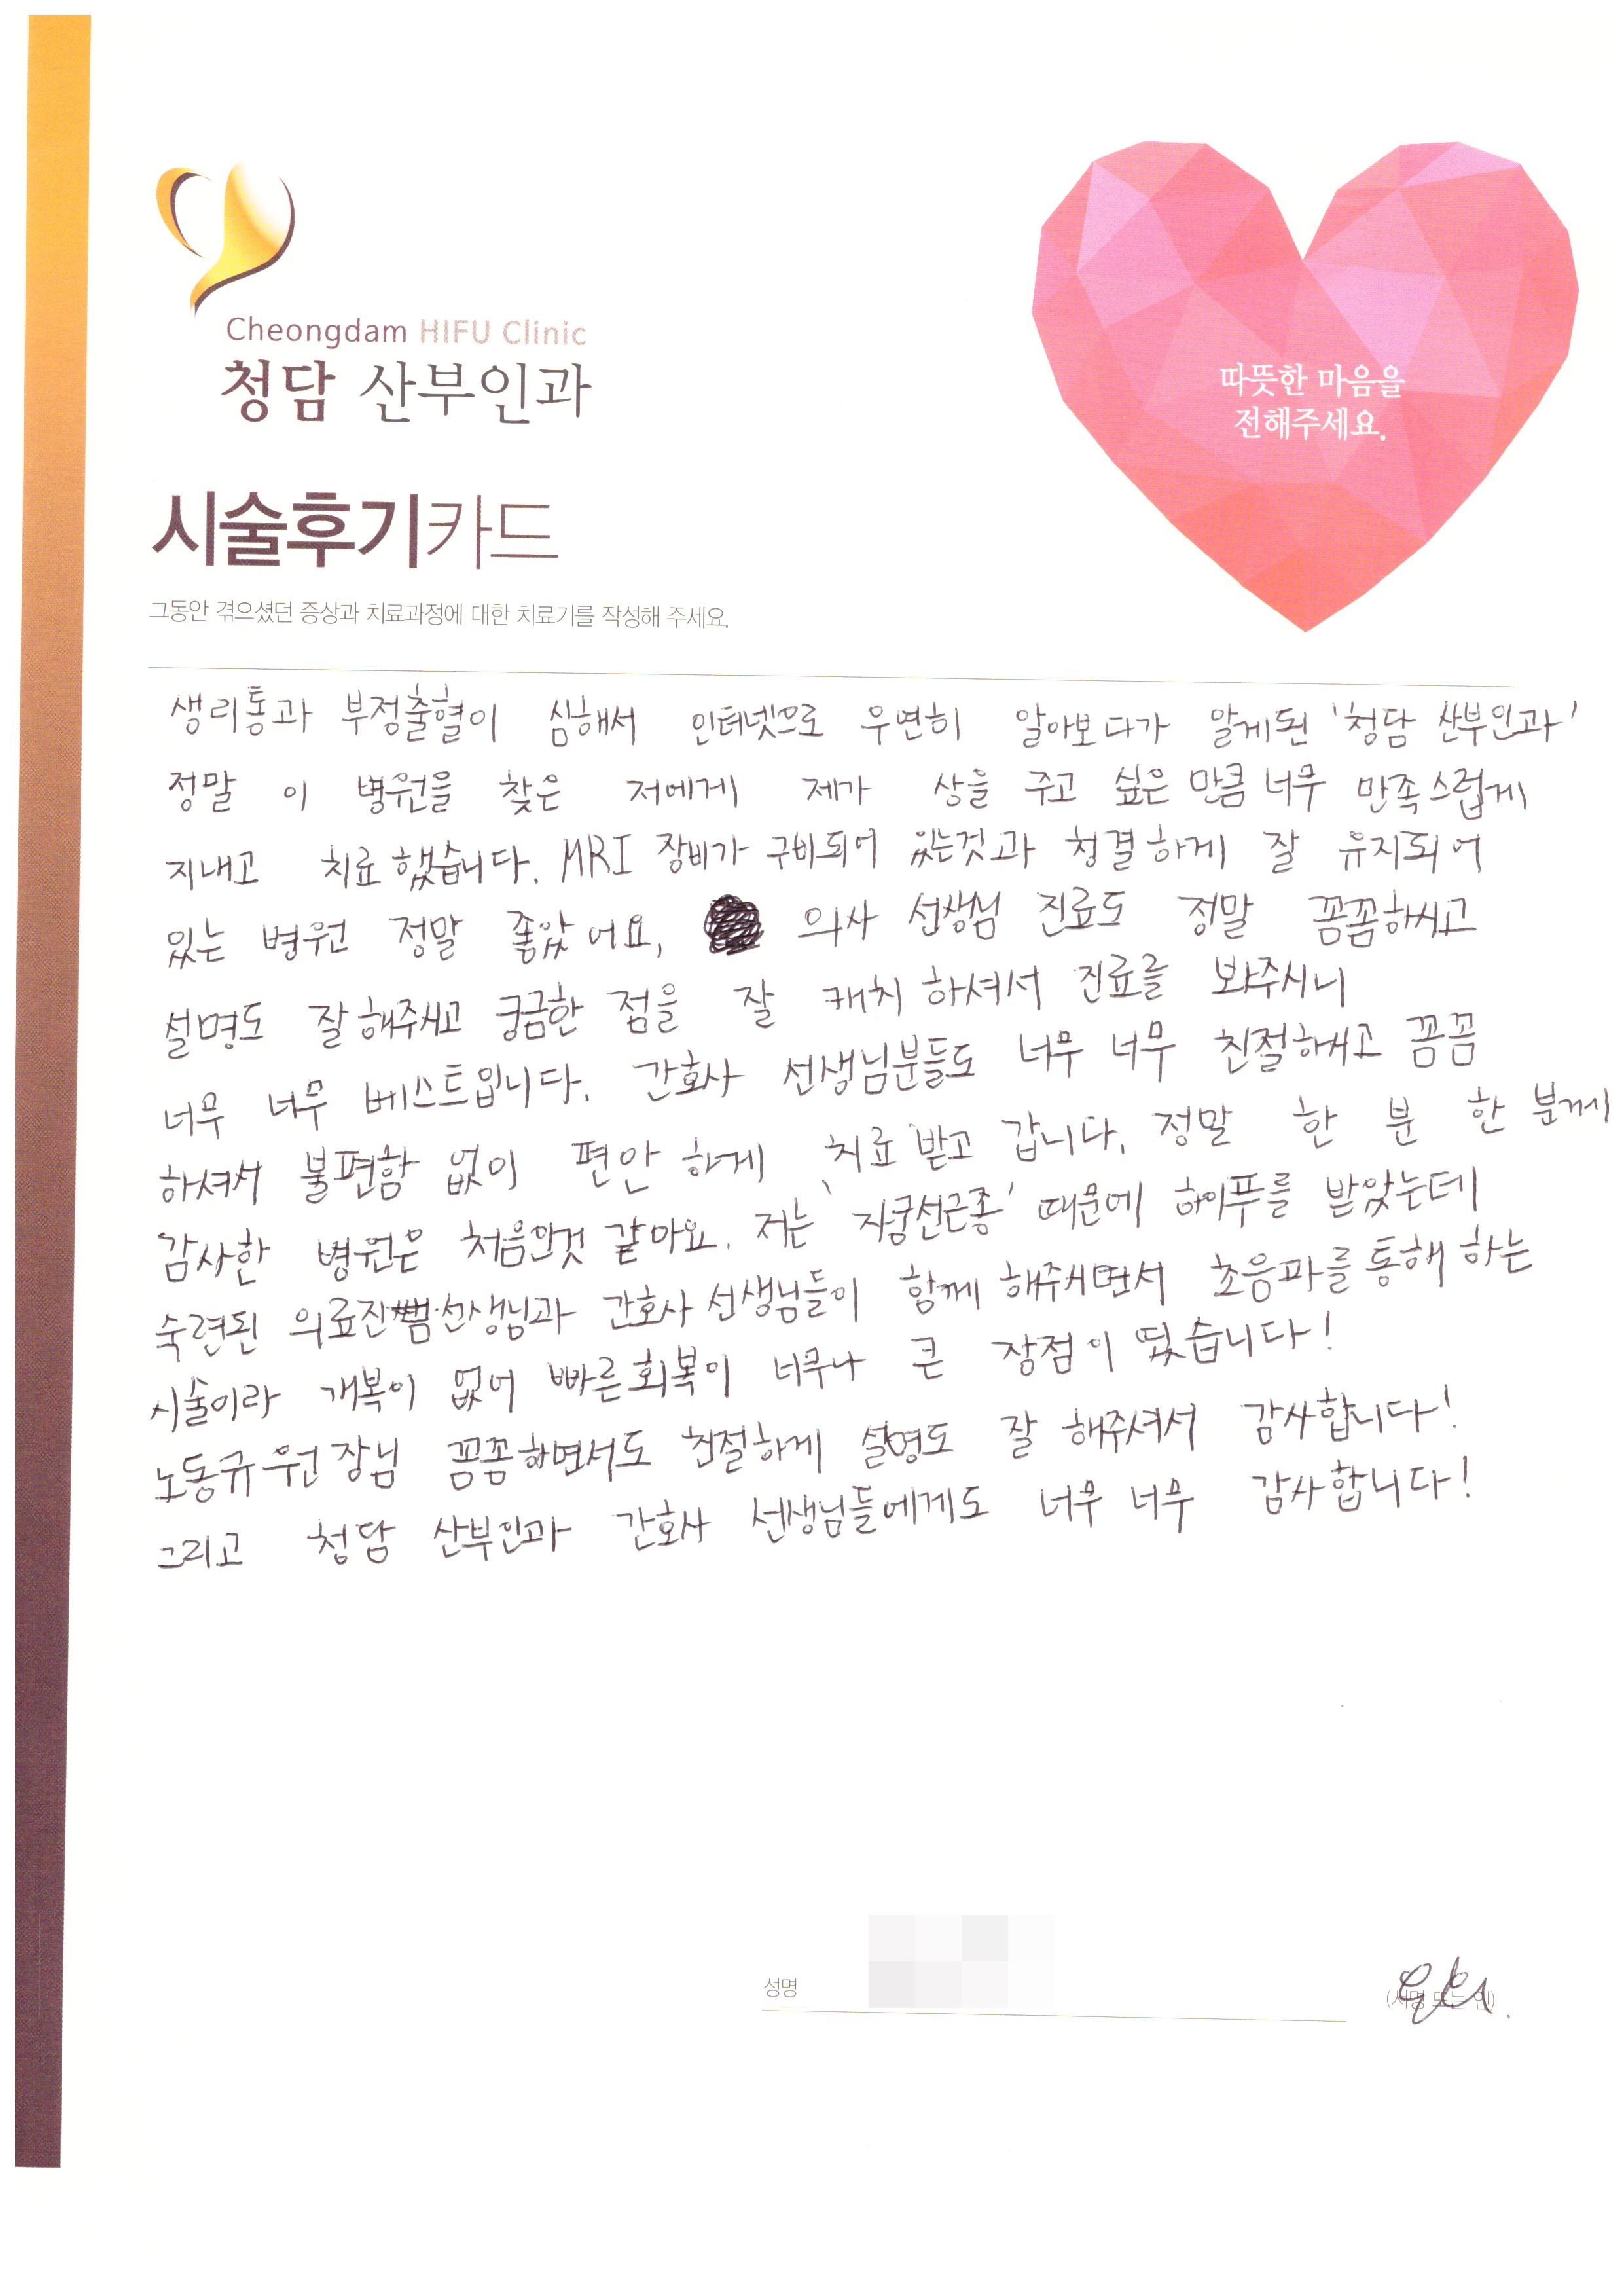 Cheongdam HIFU Clinic
청담 산부인과
따뜻한 마음을
전해주세요.
시술후기카드
그동안 겪으셨던 증상과 치료과정에 대한 치료기를 작성해 주세요.
생리통과 부정출혈이 심해서 인터넷으로 우연히 알아보다가 알게된 '청담 산부인과'
정말 이 병원을 찾은 저에게 제가 상을 주고 싶은 만큼 너무 만족스럽게
지내고 치료했습니다. MRI 장비가 구비되어 있는것과 청결하게 잘 유지되어
있는 병원 정말 좋았어요, 의사 선생님 진료도 정말 꼼꼼하시고
설명도 잘해주시고 궁금한 점을 잘 캐치하셔서 진료를 봐주시니
너무 너무 베스트입니다. 간호사 선생님분들도 너무 너무 친절하시고 꼼꼼
하셔서 불편함 없이 편안하게 치료받고 갑니다. 정말 한 분 한 분께
감사한 병원은 처음인것 같아요. 저는 '자궁선근종' 때문에 하이푸를 받았는데
숙련된 의료진 선생님과 간호사 선생님들이 함께 해주시면서 초음파를 통해 하는
시술이라 개복이 없어 빠른회복이 너무나 큰 장점이 띴습니다!
노동규원장님 꼼꼼하면서도 친절하게 설명도 잘 해주셔서 감사합니다!
그리고 청담 산부인과 간호사 선생님들에게도 너무 너무 감사합니다!
성명
(서명 또는 인)